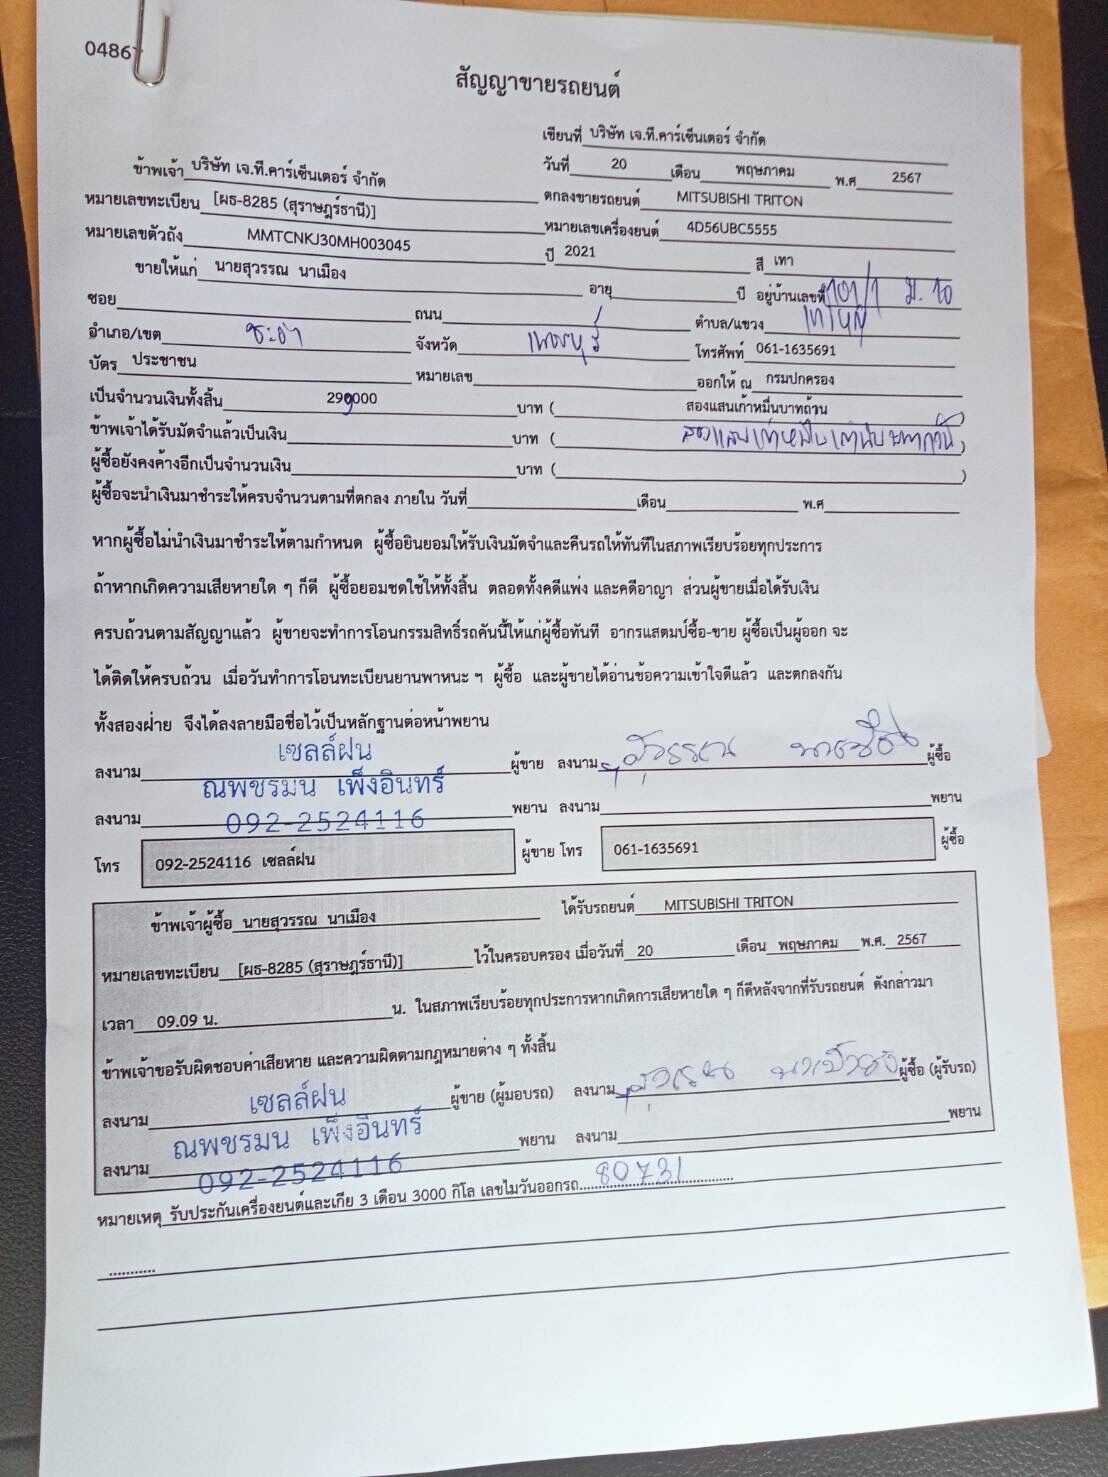 0486
สัญญาขายรถยนต์
เขียนที่ บริษัท เจ.ที.คาร์เซ็นเตอร์ จำกัด
ข้าพเจ้า บริษัท เจ.ที.คาร์เซ็นเตอร์ จำกัด วันที่ 20 เดือน พฤษภาคม พ.ศ 2567
หมายเลขทะเบียน [ผธ-8285 (สุราษฎร์ธานี)] ตกลงขายรถยนต์ MITSUBISHI TRITON
หมายเลขตัวถัง MMTCNKJ30MH003045 หมายเลขเครื่องยนต์ 4D56UBC5555
ปี 2021 สี เทา
ขายให้แก่ นายสุวรรณ นาเมือง อายุ ปี อยู่บ้านเลขที่ 101/1 ม. 10
ซอย ถนน ตำบล/แขวง
อำเภอ/เขต ชะอำ จังหวัด เพชรบุรี โทรศัพท์ 061-1635691
บัตร ประชาชน หมายเลข ออกให้ ณ กรมปกครอง
เป็นจำนวนเงินทั้งสิ้น 299000 บาท ( สองแสนเก้าหมื่นบาทถ้วน )
ข้าพเจ้าได้รับมัดจำแล้วเป็นเงิน บาท ( สองแสนเก้าหมื่นเก้าพันบาทถ้วน )
ผู้ซื้อยังคงค้างอีกเป็นจำนวนเงิน บาท ( )
ผู้ซื้อจะนำเงินมาชำระให้ครบจำนวนตามที่ตกลง ภายใน วันที่ เดือน พ.ศ
หากผู้ซื้อไม่นำเงินมาชำระให้ตามกำหนด ผู้ซื้อยินยอมให้รับเงินมัดจำและคืนรถให้ทันทีในสภาพเรียบร้อยทุกประการ
ถ้าหากเกิดความเสียหายใด ๆ ก็ดี ผู้ซื้อยอมชดใช้ให้ทั้งสิ้น ตลอดทั้งคดีแพ่ง และคดีอาญา ส่วนผู้ขายเมื่อได้รับเงิน
ครบถ้วนตามสัญญาแล้ว ผู้ขายจะทำการโอนกรรมสิทธิ์รถคันนี้ให้แก่ผู้ซื้อทันที อากรแสตมป์ซื้อ-ขาย ผู้ซื้อเป็นผู้ออก จะ
ได้ติดให้ครบถ้วน เมื่อวันทำการโอนทะเบียนยานพาหนะ ฯ ผู้ซื้อ และผู้ขายได้อ่านข้อความเข้าใจดีแล้ว และตกลงกัน
ทั้งสองฝ่าย จึงได้ลงลายมือชื่อไว้เป็นหลักฐานต่อหน้าพยาน
เซลล์ฝน
ลงนาม ผู้ขาย ลงนาม สุวรรณ นาเมือง ผู้ซื้อ
ณพชรมน เพ็งอินทร์
ลงนาม 092-2524116 พยาน ลงนาม พยาน
โทร 092-2524116 เซลล์ฝน ผู้ขาย โทร 061-1635691 ผู้ซื้อ
ข้าพเจ้าผู้ซื้อ นายสุวรรณ นาเมือง ได้รับรถยนต์ MITSUBISHI TRITON
หมายเลขทะเบียน [ผธ-8285 (สุราษฎร์ธานี)] ไว้ในครอบครอง เมื่อวันที่ 20 เดือน พฤษภาคม พ.ศ. 2567
เวลา 09.09 น. น. ในสภาพเรียบร้อยทุกประการหากเกิดการเสียหายใด ๆ ก็ดีหลังจากที่รับรถยนต์ ดังกล่าวมา
ข้าพเจ้าขอรับผิดชอบค่าเสียหาย และความผิดตามกฎหมายต่าง ๆ ทั้งสิ้น
เซลล์ฝน
ลงนาม ผู้ขาย (ผู้มอบรถ) ลงนาม สุวรรณ นาเมือง ผู้ซื้อ (ผู้รับรถ)
ณพชรมน เพ็งอินทร์
ลงนาม 092-2524116 พยาน ลงนาม พยาน
หมายเหตุ รับประกันเครื่องยนต์และเกีย 3 เดือน 3000 กิโล เลขไมวันออกรถ 80731
...........